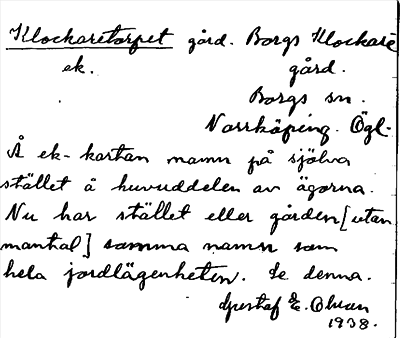 Klockaretorpet gård. Borgs Klockare
ek. gård.
Borgs sn.
Norrköping. Ögl.
Å ek-kartan namn på själva
stället å huvuddelen av ägorna.
Nu har stället eller gården [utan
mantal] samma namn som
hela jordlägenheten. Se denna.
Gustaf E. Ohson
1938.